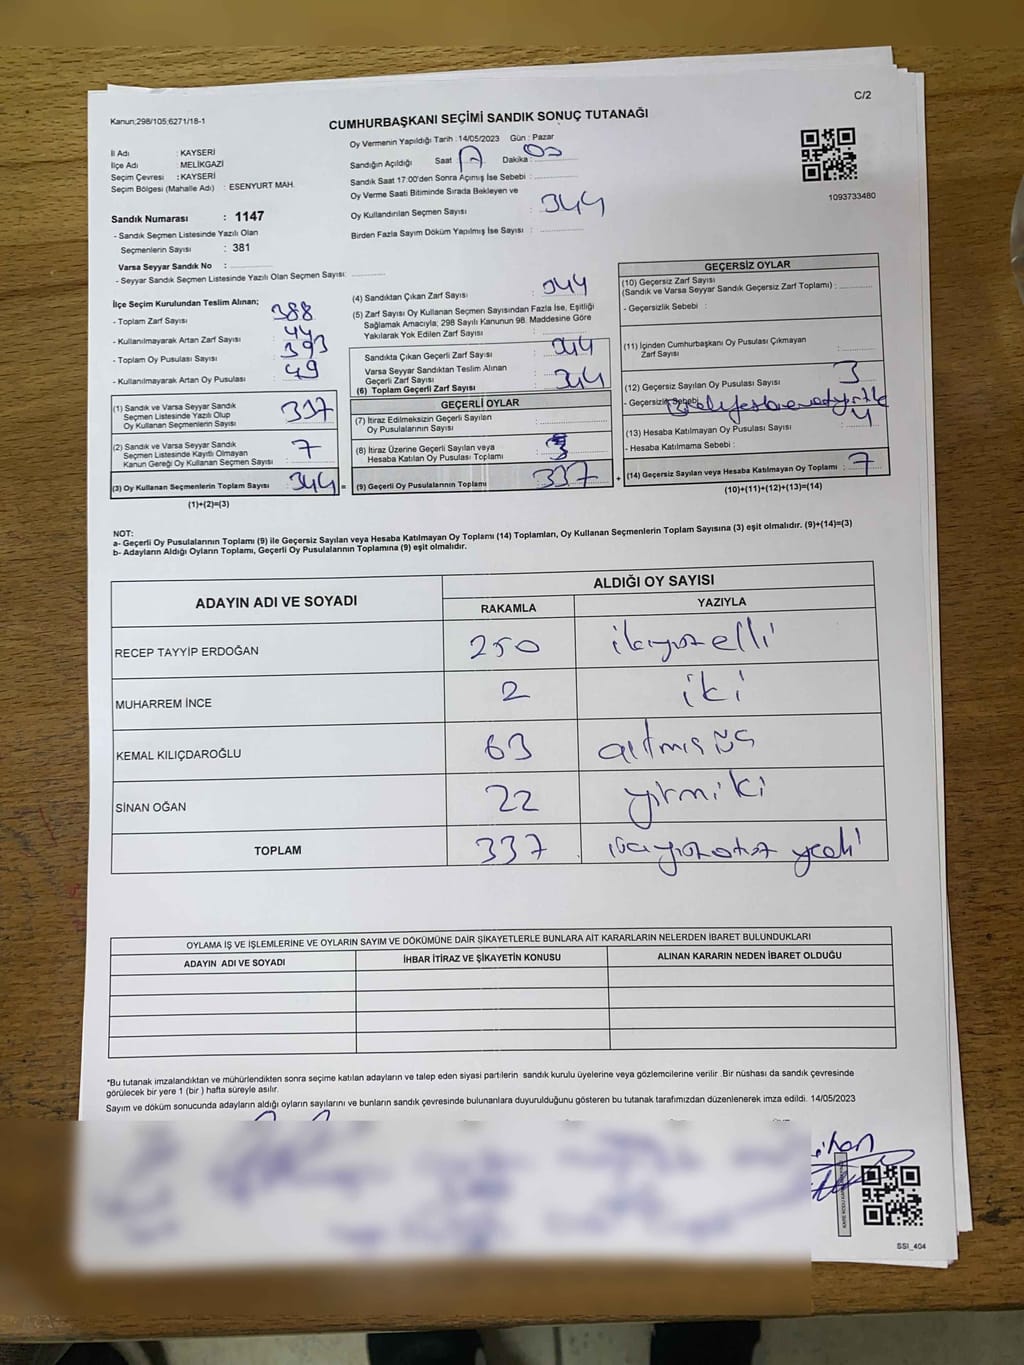 C/2
Kanun:298/105;6271/18-1
CUMHURBAŞKANI SEÇİMİ SANDIK SONUÇ TUTANAĞI
İl Adı : KAYSERİ
İlçe Adı : MELİKGAZİ
Seçim Çevresi : KAYSERİ
Seçim Bölgesi (Mahalle Adı) : ESENYURT MAH.
Oy Vermenin Yapıldığı Tarih : 14/05/2023 Gün : Pazar
Sandığın Açıldığı Saat Dakika : 00
Sandık Saat 17:00'den Sonra Açımış İse Sebebi :
Oy Verme Saati Bitiminde Sırada Bekleyen ve
Oy Kullandırılan Seçmen Sayısı : 344
Birden Fazla Sayım Döküm Yapılmış İse Sayısı :
1093733480
Sandık Numarası : 1147
- Sandık Seçmen Listesinde Yazılı Olan
Seçmenlerin Sayısı : 381
Varsa Seyyar Sandık No :
- Seyyar Sandık Seçmen Listesinde Yazılı Olan Seçmen Sayısı:
İlçe Seçim Kurulundan Teslim Alınan;
- Toplam Zarf Sayısı : 388
- Kullanılmayarak Artan Zarf Sayısı : 44
- Toplam Oy Pusulası Sayısı : 393
- Kullanılmayarak Artan Oy Pusulası : 49
(1) Sandık ve Varsa Seyyar Sandık
Seçmen Listesinde Yazılı Olup
Oy Kullanan Seçmenlerin Sayısı : 337
(2) Sandık ve Varsa Seyyar Sandık
Seçmen Listesinde Kayıtlı Olmayan
Kanun Gereği Oy Kullanan Seçmen Sayısı : 7
(3) Oy Kullanan Seçmenlerin Toplam Sayısı : 344 =
(1)+(2)=(3)
(4) Sandıktan Çıkan Zarf Sayısı : 344
(5) Zarf Sayısı Oy Kullanan Seçmen Sayısından Fazla İse, Eşitliği
Sağlamak Amacıyla; 298 Sayılı Kanunun 98. Maddesine Göre
Yakılarak Yok Edilen Zarf Sayısı :
Sandıkta Çıkan Geçerli Zarf Sayısı : 344
Varsa Seyyar Sandıktan Teslim Alınan
Geçerli Zarf Sayısı
(6) Toplam Geçerli Zarf Sayısı : 344
GEÇERLİ OYLAR
(7) İtiraz Edilmeksizin Geçerli Sayılan
Oy Pusulalarının Sayısı :
(8) İtiraz Üzerine Geçerli Sayılan veya
Hesaba Katılan Oy Pusulası Toplamı : 3
(9) Geçerli Oy Pusulalarının Toplamı : 337 +
GEÇERSİZ OYLAR
(10) Geçersiz Zarf Sayısı
(Sandık ve Varsa Seyyar Sandık Geçersiz Zarf Toplamı) :
- Geçersizlik Sebebi :
(11) İçinden Cumhurbaşkanı Oy Pusulası Çıkmayan
Zarf Sayısı :
(12) Geçersiz Sayılan Oy Pusulası Sayısı : 3
- Geçersizlik Sebebi
(13) Hesaba Katılmayan Oy Pusulası Sayısı : 4
- Hesaba Katılmama Sebebi :
(14) Geçersiz Sayılan veya Hesaba Katılmayan Oy Toplamı : 7
(10)+(11)+(12)+(13)=(14)
NOT:
a- Geçerli Oy Pusulalarının Toplamı (9) ile Geçersiz Sayılan veya Hesaba Katılmayan Oy Toplamı (14) Toplamları, Oy Kullanan Seçmenlerin Toplam Sayısına (3) eşit olmalıdır. (9)+(14)=(3)
b- Adayların Aldığı Oyların Toplamı, Geçerli Oy Pusulalarının Toplamına (9) eşit olmalıdır.
ADAYIN ADI VE SOYADI
ALDIĞI OY SAYISI
RAKAMLA YAZIYLA
RECEP TAYYİP ERDOĞAN 250 ikiyüzelli
MUHARREM İNCE 2 iki
KEMAL KILIÇDAROĞLU 63 altmış üç
SİNAN OĞAN 22 yirmiki
TOPLAM 337
OYLAMA İŞ VE İŞLEMLERİNE VE OYLARIN SAYIM VE DÖKÜMÜNE DAİR ŞİKAYETLERLE BUNLARA AİT KARARLARIN NELERDEN İBARET BULUNDUKLARI
ADAYIN ADI VE SOYADI İHBAR İTİRAZ VE ŞİKAYETİN KONUSU ALINAN KARARIN NEDEN İBARET OLDUĞU
*Bu tutanak imzalandıktan ve mühürlendikten sonra seçime katılan adayların ve talep eden siyasi partilerin sandık kurulu üyelerine veya gözlemcilerine verilir .Bir nüshası da sandık çevresinde
görülecek bir yere 1 (bir ) hafta süreyle asılır.
Sayım ve döküm sonucunda adayların aldığı oyların sayılarını ve bunların sandık çevresinde bulunanlara duyurulduğunu gösteren bu tutanak tarafımızdan düzenlenerek imza edildi. 14/05/2023
SSI_404